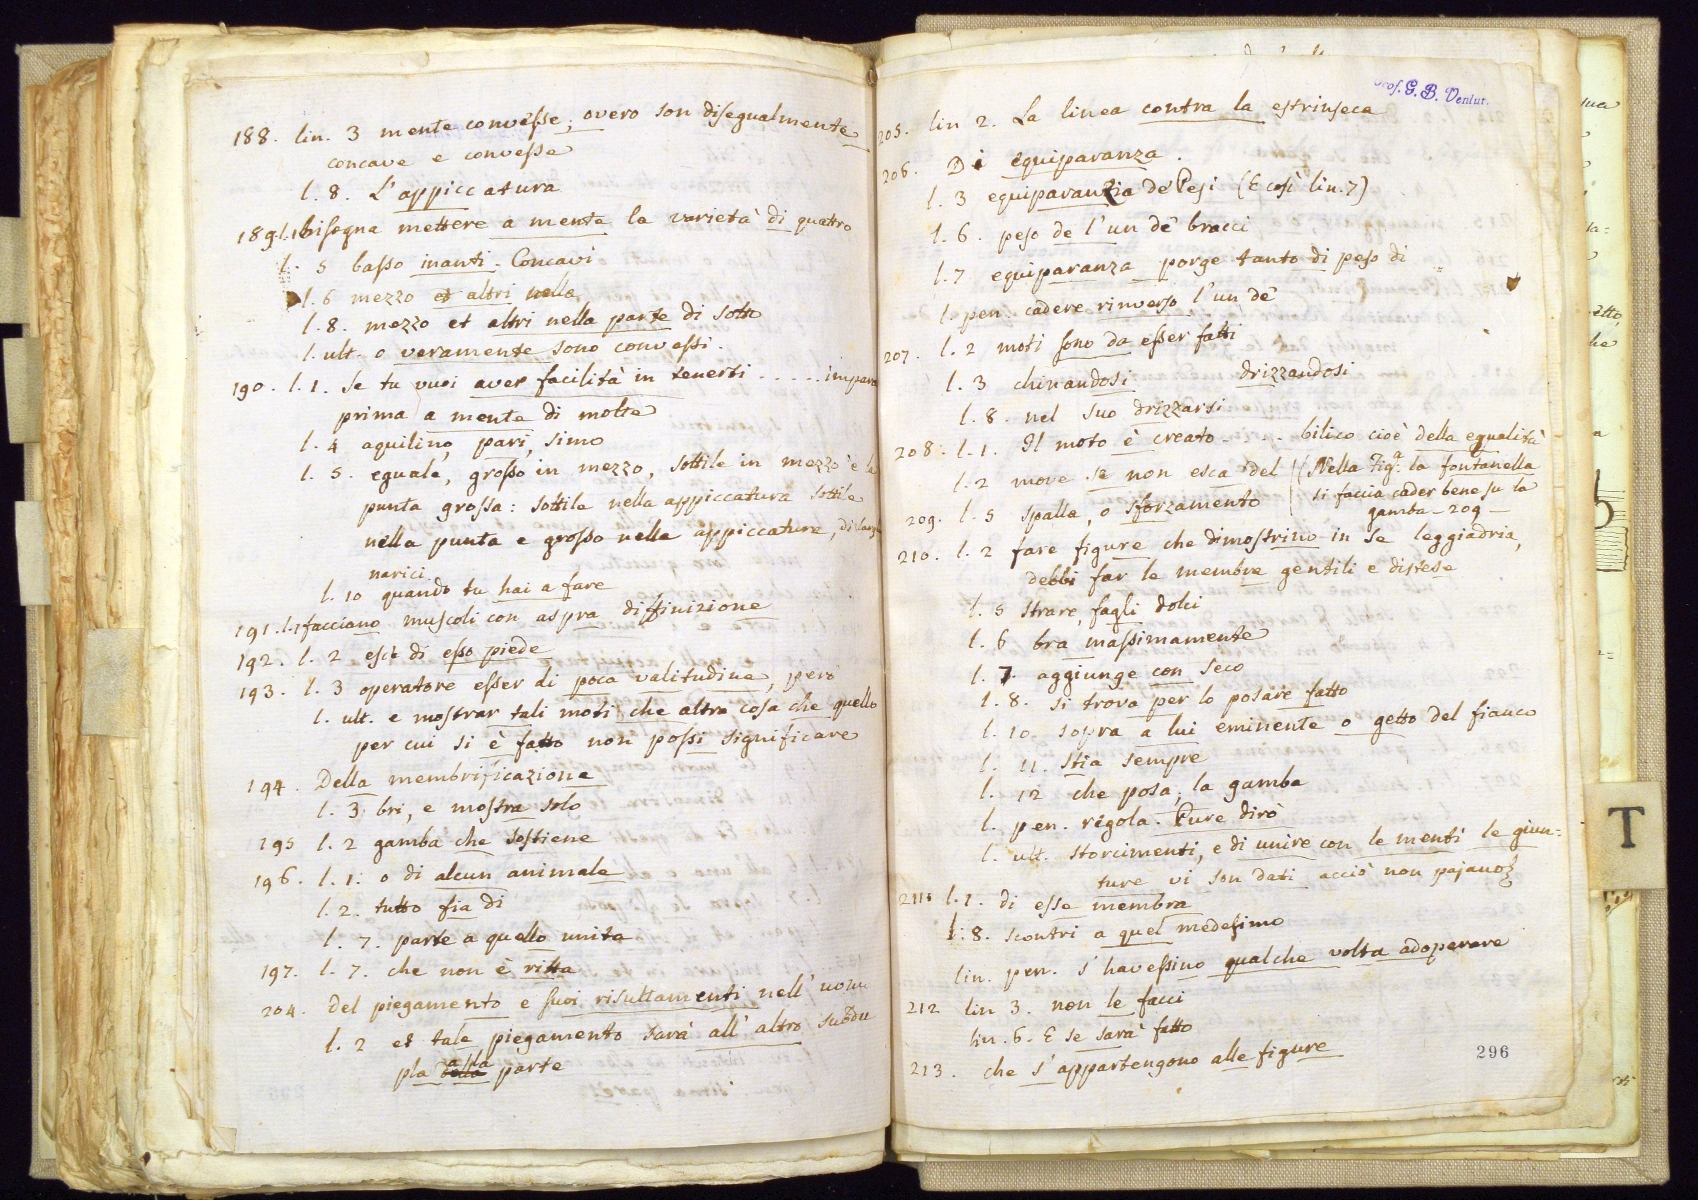 188. lin. 3 mente convesse; overo son disegualmente
concave e convesse
l. 8. L'appiccatura
189. l.1 bisogna mettere a mente la varietà di quattro
l. 5 basso inanti. Concavi
l. 6 mezzo et altri nella
l. 8. mezzo et altri nella parte di sotto
l. ult. o veramente sono convessi.
190. l. 1. Se tu vuoi aver facilità in tenerti ..... impara
prima a mente di molte
l. 4 aquilino, pari, simo
l. 5. eguale, grosso in mezzo, sottile in mezzo e la
punta grossa: sottile nella appiccatura sottile
nella punta e grosso nelle appiccature, di larghe
narici
l. 10 quando tu hai a fare
191. l.1 facciano muscoli con aspra diffinizione
192. l. 2 esce di esso piede
193. l. 3 operatore esser di poca valitudine, però
l. ult. e mostrar tali moti che altra cosa che quello
per cui si è fatto non possi significare
194. Della membrificazione
l. 3. bri, e mostra solo
195 l. 2 gamba che sostiene
196. l. 1. o di alcun animale
l. 2. tutto fia di
l. 7. parte a quello unita
197. l. 7. che non è ritta
204. del piegamento e suoi risultamenti nell'uomo
l. 2 et tale piegamento sarà all'altro subdu
pla alla parte
Prof. G. B. Ventur.
205. lin 2. La linea contra la estrinseca
206. Di equiparanza.
l. 3 equiparanzia de' Pesi (E così lin. 7)
l. 6. peso de l'un de' bracci
l. 7 equiparanza porge tanto di peso di
l. pen. cadere rinverso l'un de'
207. l. 2 moti sono da esser fatti
l. 3 chinandosi drizzandosi
l. 8. nel suo drizzarsi
208. l. 1. Il moto è creato - - . bilico cioè della equalità
l. 2 move se non esca del (Nella Fig.a la fontanella
si faccia cader bene su la
gamba - 209 -
209. l. 5 spalla, o sforzamento
210. l. 2 fare figure che dimostrino in se leggiadria,
debbi far le membra gentili e distese
l. 5 strare, fagli dolci
l. 6 bra massimamente
l. 7. aggiunge con seco
l. 8. si trova per lo posare fatto
l. 10. sopra a lui eminente o getto del fianco
l. 11. stia sempre
l. 12 che posa; la gamba
l. pen. regola. Pure dirò
l. ult. storcimenti, e di unire con le menti le giun=
ture vi son dati acciò non pajano
211. l. 1. di esse membra
l. 8. scontri a quel medesimo
lin. pen. s'havessino qualche volta adoperare
212 lin 3. non le facci
lin. 6. E se sarà fatto
213. che s'appartengono alle figure
296
T